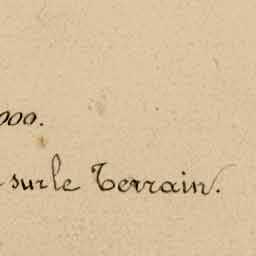 000.
sur le Terrain.